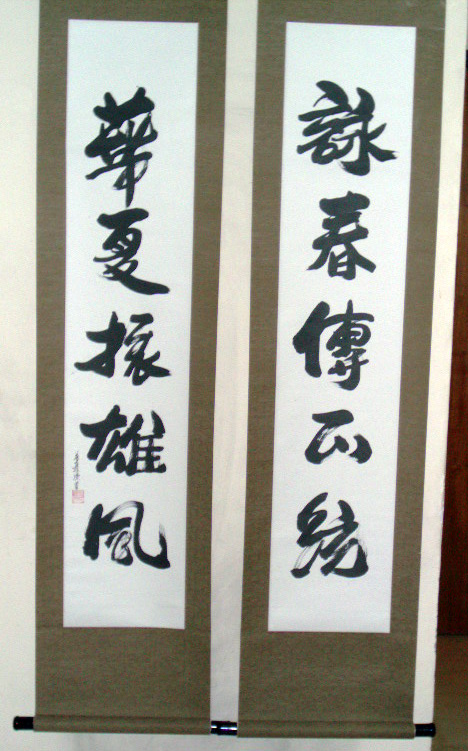 詠春傳正統
華夏振雄風